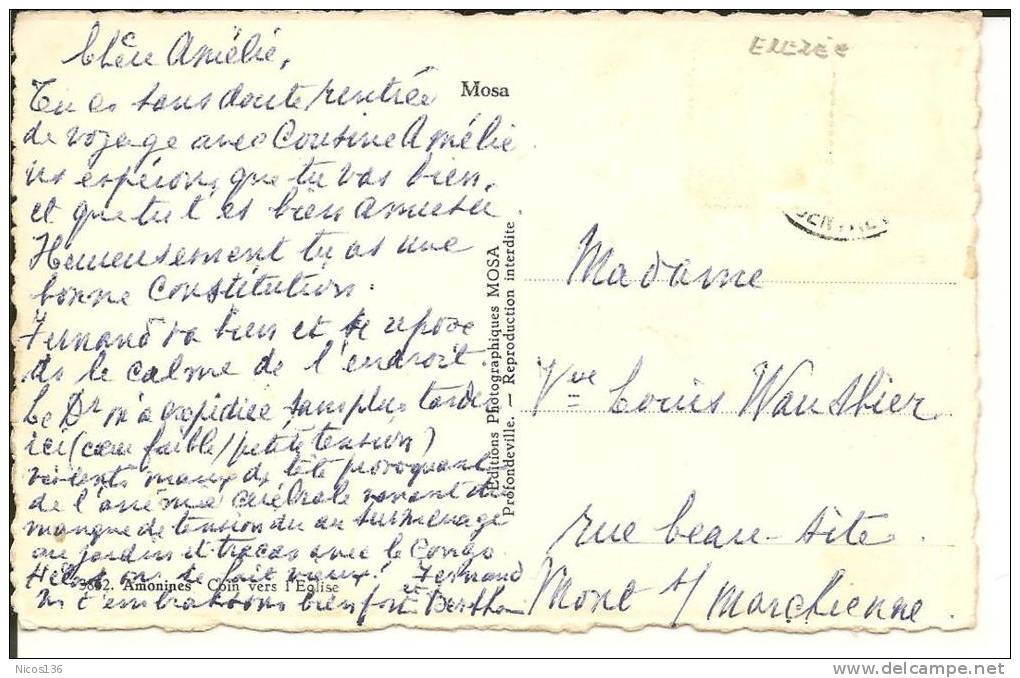 Chère Amélie,
Tu es sans doute rentrée
de voyage avec Cousine Amélie.
ns espérons que tu vas bien,
et que tu t'es bien amusée.
Heureusement tu as une
bonne Constitution.
Fernand va bien et se repose
ds le calme de l'endroit.
Le Dr m'a expédiée sans plus tarder
ici (cœur faible/petite tension)
violents maux de tête provoquant
de l'anémie cérébrale venant du
manque de tension du au surmenage
au jardin et tracas avec le Congo.
Hélas on se fait vieux! Fernand
ns t'embrassons bien fort et Berthe
3882. Amonines Coin vers l'Eglise
Mosa
Editions Photographiques MOSA
Profondeville. — Reproduction interdite
EREZÉE
Madame
Vve Louis Wauthier
rue beau-site.
Mont s/ Marchienne.
Nicos136
delcampe.net